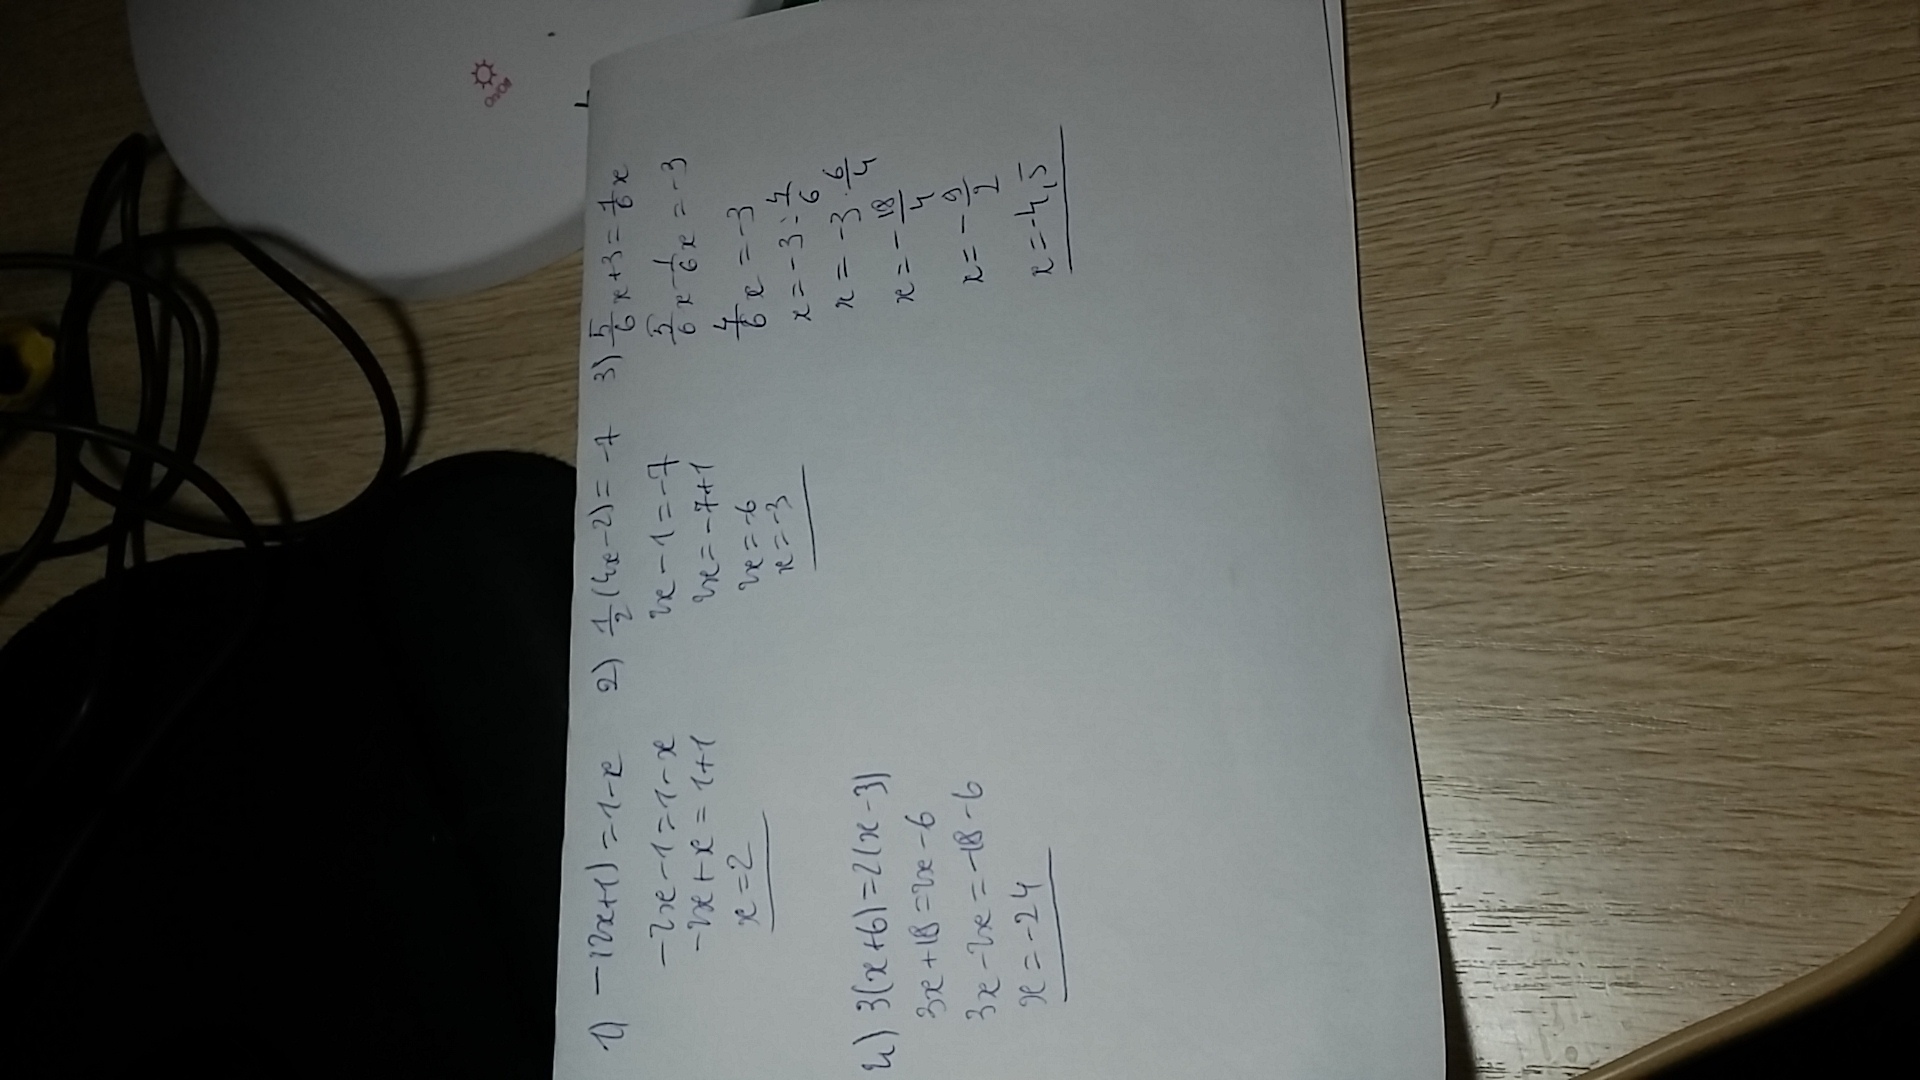 1) -(2x+1)=1-x
-2x-1=1-x
-2x+x=1+1
x=2
2) 1/2(4x-2)=-7
2x-1=-7
2x=-7+1
2x=-6
x=-3
3) 5/6x+3=1/6x
5/6x-1/6x=-3
4/6x=-3
x=-3:4/6
x=-3·6/4
x=-18/4
x=-9/2
x=-4,5
4) 3(x+6)=2(x-3)
3x+18=2x-6
3x-2x=-18-6
x=-24